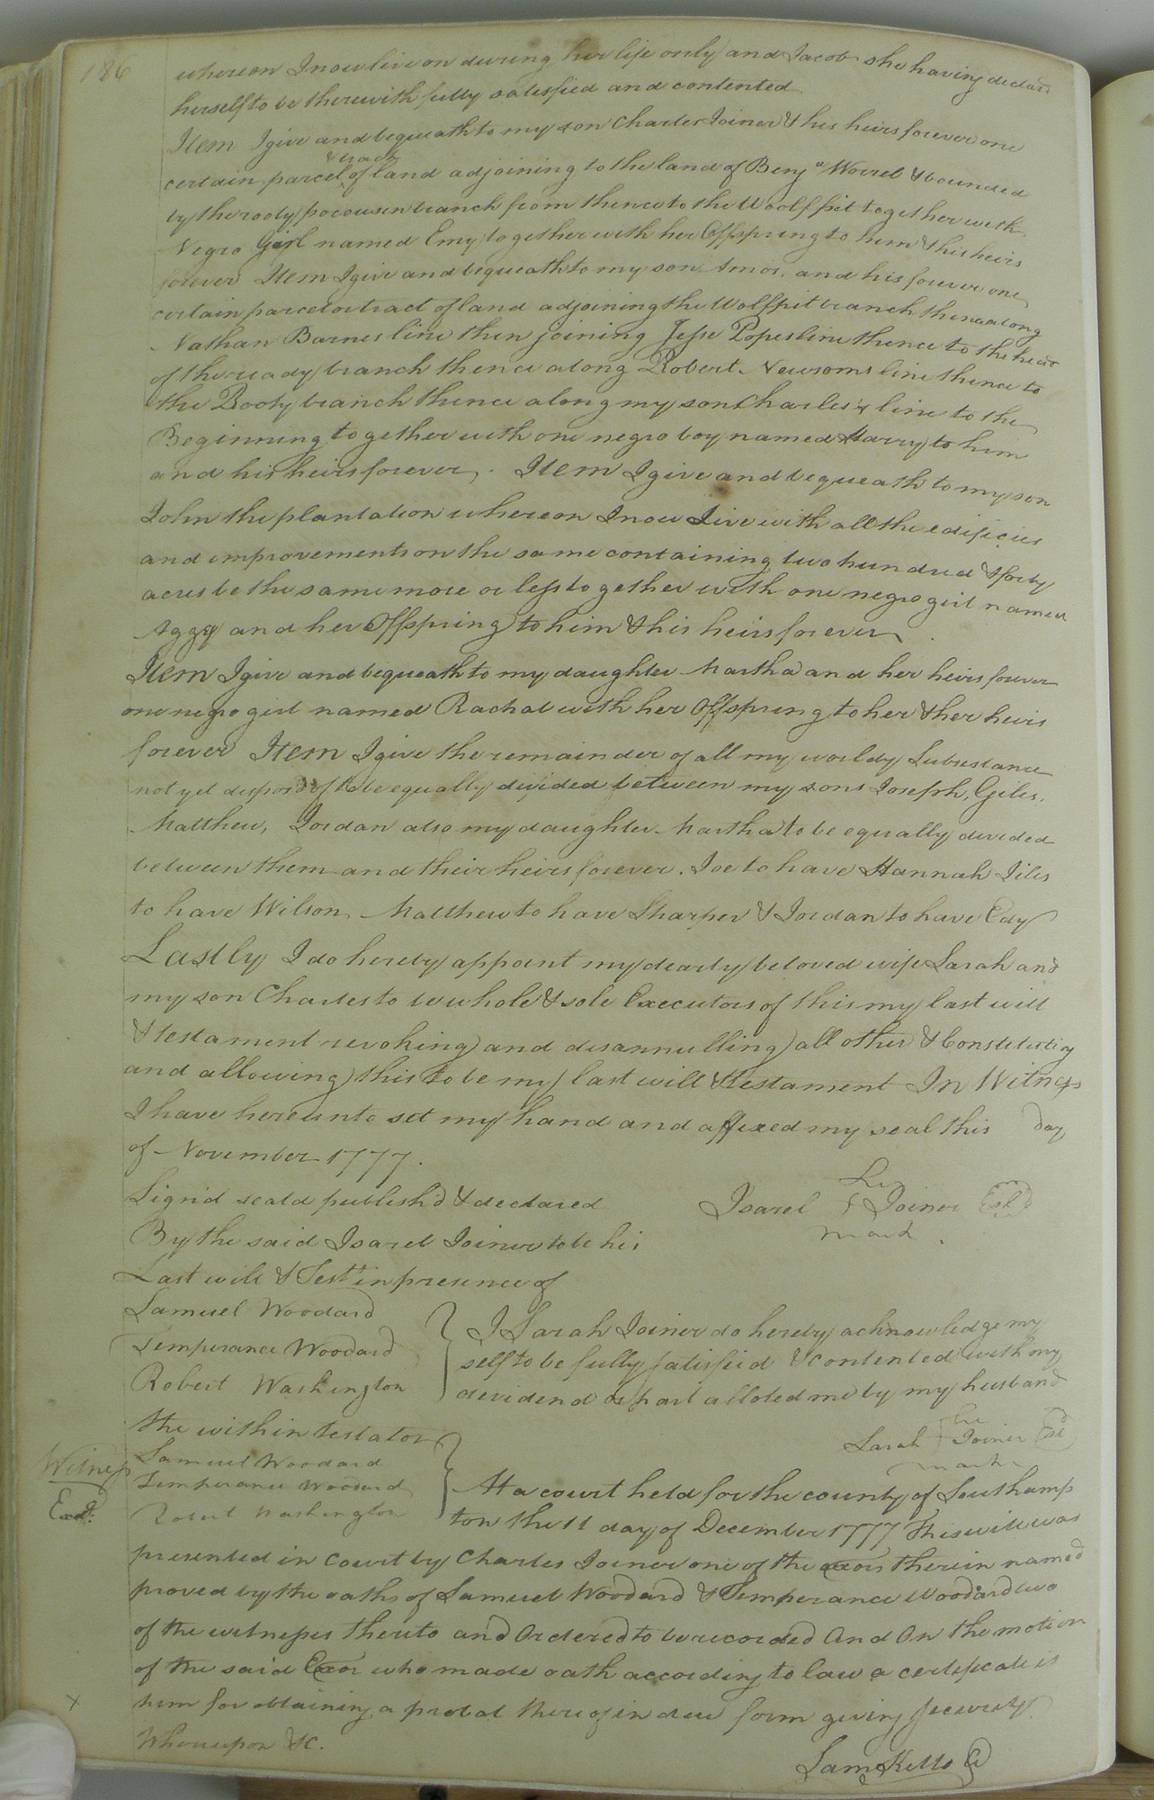 186
whereon I now live on during her life only and Jacob she having declard
herself to be therewith fully satisfied and contented
Item I give and bequeath to my son Charles Joiner & his heirs forever one
& tract
certain parcel of land adjoining to the land of Benja Worrel & bounded
by the rooty pocouson branch from thence to the Woolf pit together with
Negro Girl named Emy together with her Offspring to him & his heirs
forever Item I give and bequeath to my son Amos, and his forever one
certain parcel or tract of land adjoining the Wolf pit branch thence along
Nathan Barnes line then joining Jesse Popes line thence to the head
of the ready branch thence along Robert Newsoms line thence to
the Booty branch thence along my son Charles's line to the
Beginning together with one negro boy named Harry to him
and his heirs forever. Item I give and bequeath to my son
John the plantation whereon I now Live with all the edificies
and improvements on the same containing two hundred & forty
acres be the same more or less together with one negro girl named
Aggy and her Offspring to him & his heirs forever
Item I give and bequeath to my daughter Martha and her heirs forever
one negro girl named Rachal with her Offspring to her & her heirs
forever Item I give the remainder of all my worldy Substance
not yet disposd of to be equally devided between my sons Joseph, Giles,
Matthew, Jordan also my daughter Martha to be equally devided
between them and their heirs forever. Joe to have Hannah Jiles
to have Wilson, Matthew to have Sharper & Jordan to have Edy
Lastly I do hereby appoint my dearly beloved wife Sarah and
my son Charles to be whole & sole Executors of this my last will
& testament revoking and disannulling all other & Constituting
and allowing this to be my last will & testament In Witness
I have hereunto set my hand and affixed my seal this day
of November 1777.
Sign'd seal'd publish'd & declared
his
Isarel Joiner
mark
By the said Isarel Joiner to be his
Last will & Testt in presence of
Samuel Woodard
Temperance Woodard
Robert Washington
I Sarah Joiner do hereby acknowledge my
self to be fully satisfied & contented with my
devidend or part alloted me by my husband
the within testator
her
Sarah Joiner
mark
Witness
Samuel Woodard
Temperance Woodard
Robert Washington
Exd.
At a court held for the county of Southamp
ton the 11 day of December 1777 This will was
presented in Court by Charles Joiner one of the exors therein named
proved by the oaths of Samuel Woodard & Temperance Woodard two
of the witnesses thereto and Ordered to be recorded And On the motion
of the said Exor who made oath according to law a certificate is
him for obtaining a probat thereof in due form giving security
Whereupon &c.
Sam Kello